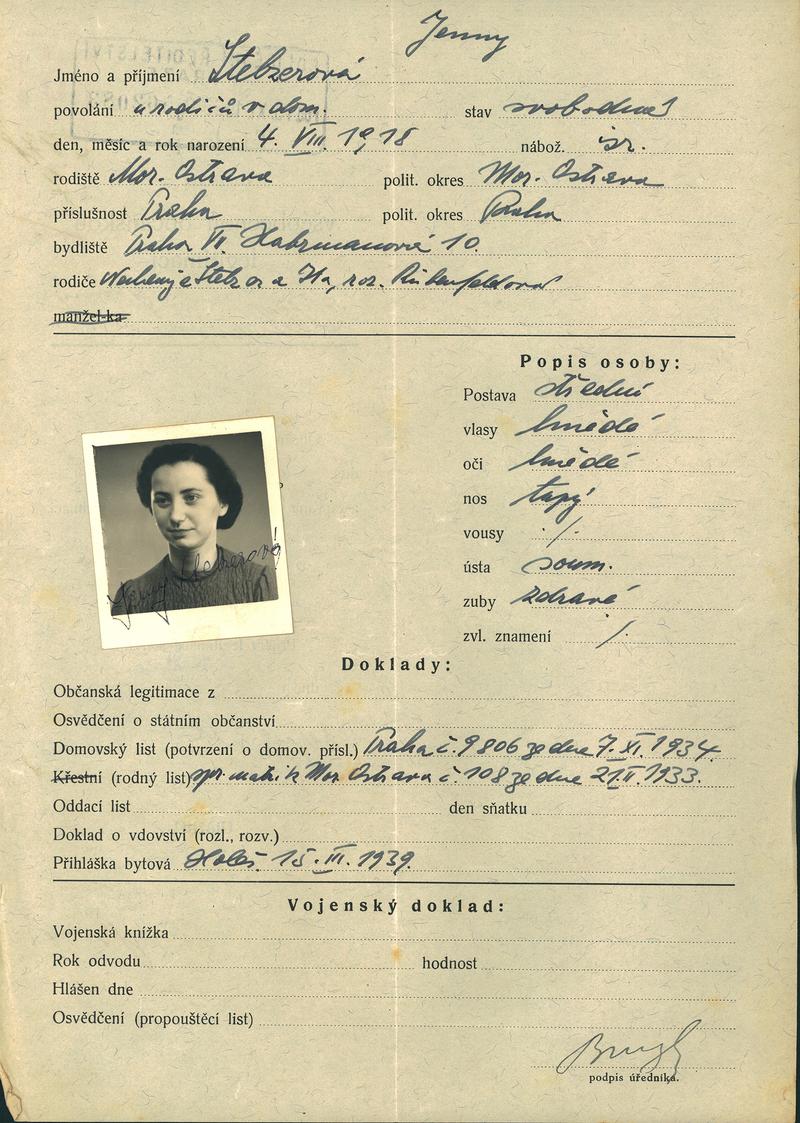 Jenny
Jméno a příjmení Stelzerová
povolání u rodičů v dom. stav svobodná
den, měsíc a rok narození 4. VIII. 1918 nábož. isr.
rodiště Mor. Ostrava polit. okres Mor. Ostrava
příslušnost Praha polit. okres Praha
bydliště Praha VII. Habrmanova 10.
rodiče Stelzer a roz. Rubenfeldová
manžel-ka
Popis osoby:
Postava střední
vlasy hnědé
oči hnědé
nos tupý
vousy ./.
ústa soum.
zuby zdravé
zvl. znamení /.
Jenny Stelzerová
Doklady:
Občanská legitimace z
Osvědčení o státním občanství
Domovský list (potvrzení o domov. přísl.) Praha č. 9806 ze dne 7. XI. 1934.
Křestní (rodný list) matrik Mor. Ostrava č. 108 ze dne 21. II. 1933.
Oddací list den sňatku
Doklad o vdovství (rozl., rozv.)
Přihláška bytová Holeš. 15. III. 1939.
Vojenský doklad:
Vojenská knížka
Rok odvodu hodnost
Hlášen dne
Osvědčení (propouštěcí list)
podpis úředníka.